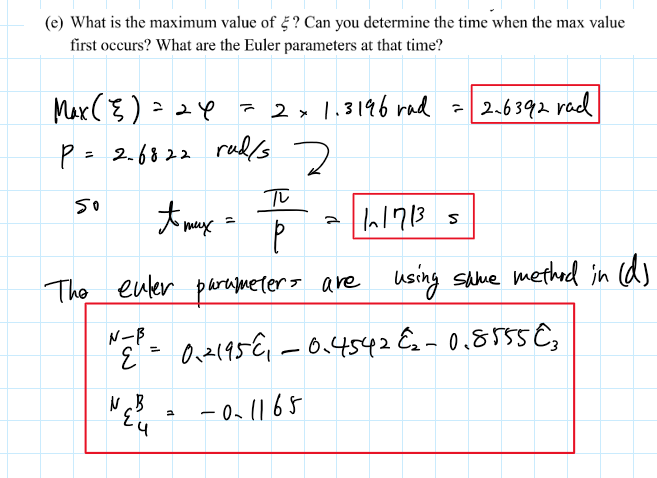 (e) What is the maximum value of ξ? Can you determine the time when the max value
first occurs? What are the Euler parameters at that time?
Max(ξ) = 2φ = 2 × 1.3196 rad = 2.6392 rad
P = 2.6822 rad/s
so t_max = π/p = 1.1713 s
The euler parameters are using same method in (d)
ᴺε̄ᴮ = 0.2195ĉ₁ - 0.4542ĉ₂ - 0.8555ĉ₃
ᴺε₄ᴮ = -0.1165